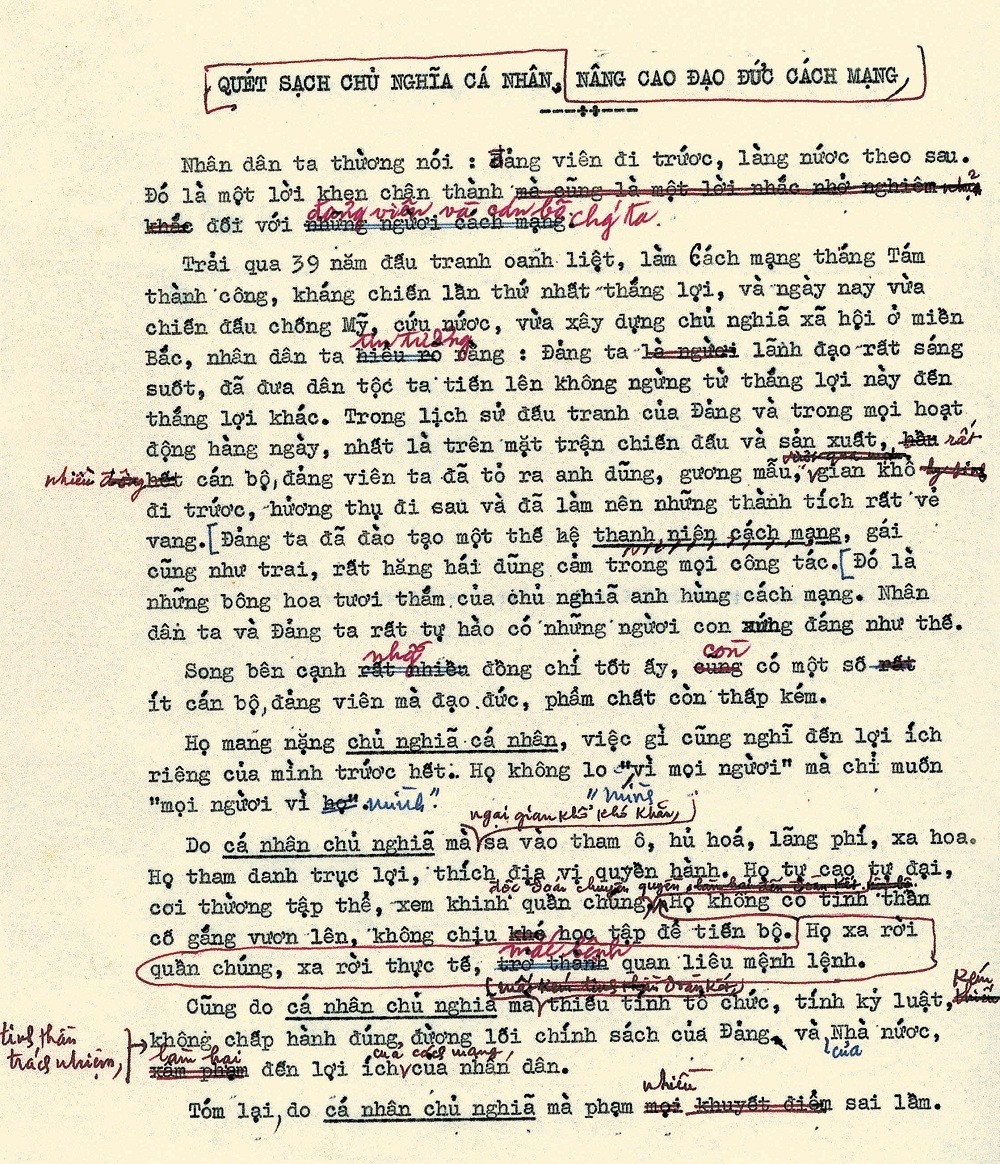 QUÉT SẠCH CHỦ NGHĨA CÁ NHÂN, NÂNG CAO ĐẠO ĐỨC CÁCH MẠNG,
Nhân dân ta thường nói : Đảng viên đi trước, làng nước theo sau.
Đó là một lời khen chân thành mà cũng là một lời nhắc nhở nghiêm
đảng viên và cán bộ chg ta.
khắc đối với những người cách mạng.
Trải qua 39 năm đấu tranh oanh liệt, làm Cách mạng tháng Tám
thành công, kháng chiến lần thứ nhất thắng lợi, và ngày nay vừa
chiến đấu chống Mỹ, cứu nước, vừa xây dựng chủ nghiã xã hội ở miền
tin tưởng
Bắc, nhân dân ta hiểu rõ rằng : Đảng ta là người lãnh đạo rất sáng
suốt, đã đưa dân tộc ta tiến lên không ngừng từ thắng lợi này đến
thắng lợi khác. Trong lịch sử đấu tranh của Đảng và trong mọi hoạt
động hàng ngày, nhất là trên mặt trận chiến đấu và sản xuất, hầu rất
nhiều hết cán bộ,đảng viên ta đã tỏ ra anh dũng, gương mẫu, gian khổ
đi trước, hưởng thụ đi sau và đã làm nên những thành tích rất vẻ
vang. [Đảng ta đã đào tạo một thế hệ thanh niên cách mạng, gái
cũng như trai, rất hăng hái dũng cảm trong mọi công tác. [Đó là
những bông hoa tươi thắm của chủ nghiã anh hùng cách mạng. Nhân
dân ta và Đảng ta rất tự hào có những người con xứng đáng như thế.
những còn
Song bên cạnh rất nhiều đồng chí tốt ấy, cũng có một số rất
ít cán bộ,đảng viên mà đạo đức, phẩm chất còn thấp kém.
Họ mang nặng chủ nghiã cá nhân, việc gì cũng nghĩ đến lợi ích
riêng của mình trước hết. Họ không lo "vì mọi người" mà chỉ muốn
"mình
"mọi người vì họ". mình".
ngại gian khổ khó khăn,
Do cá nhân chủ nghiã mà sa vào tham ô, hủ hoá, lãng phí, xa hoa.
Họ tham danh trục lợi, thích địa vị quyền hành. Họ tự cao tự đại,
độc đoán chuyên quyền,
coi thường tập thể, xem khinh quần chúng. Họ không có tinh thần
cố gắng vươn lên, không chịu khó học tập để tiến bộ. Họ xa rời
mắc bệnh
quần chúng, xa rời thực tế, trở thành quan liêu mệnh lệnh.
mất đoàn kết,
Cũng do cá nhân chủ nghiã mà thiếu tính tổ chức, tính kỷ luật, kém
tinh thần trách nhiệm,
không chấp hành đúng đường lối chính sách của Đảng, và Nhà nước,
của
làm hại của cách mạng,
xâm phạm đến lợi ích của nhân dân.
nhiều
Tóm lại, do cá nhân chủ nghiã mà phạm mọi khuyết điểm sai lầm.